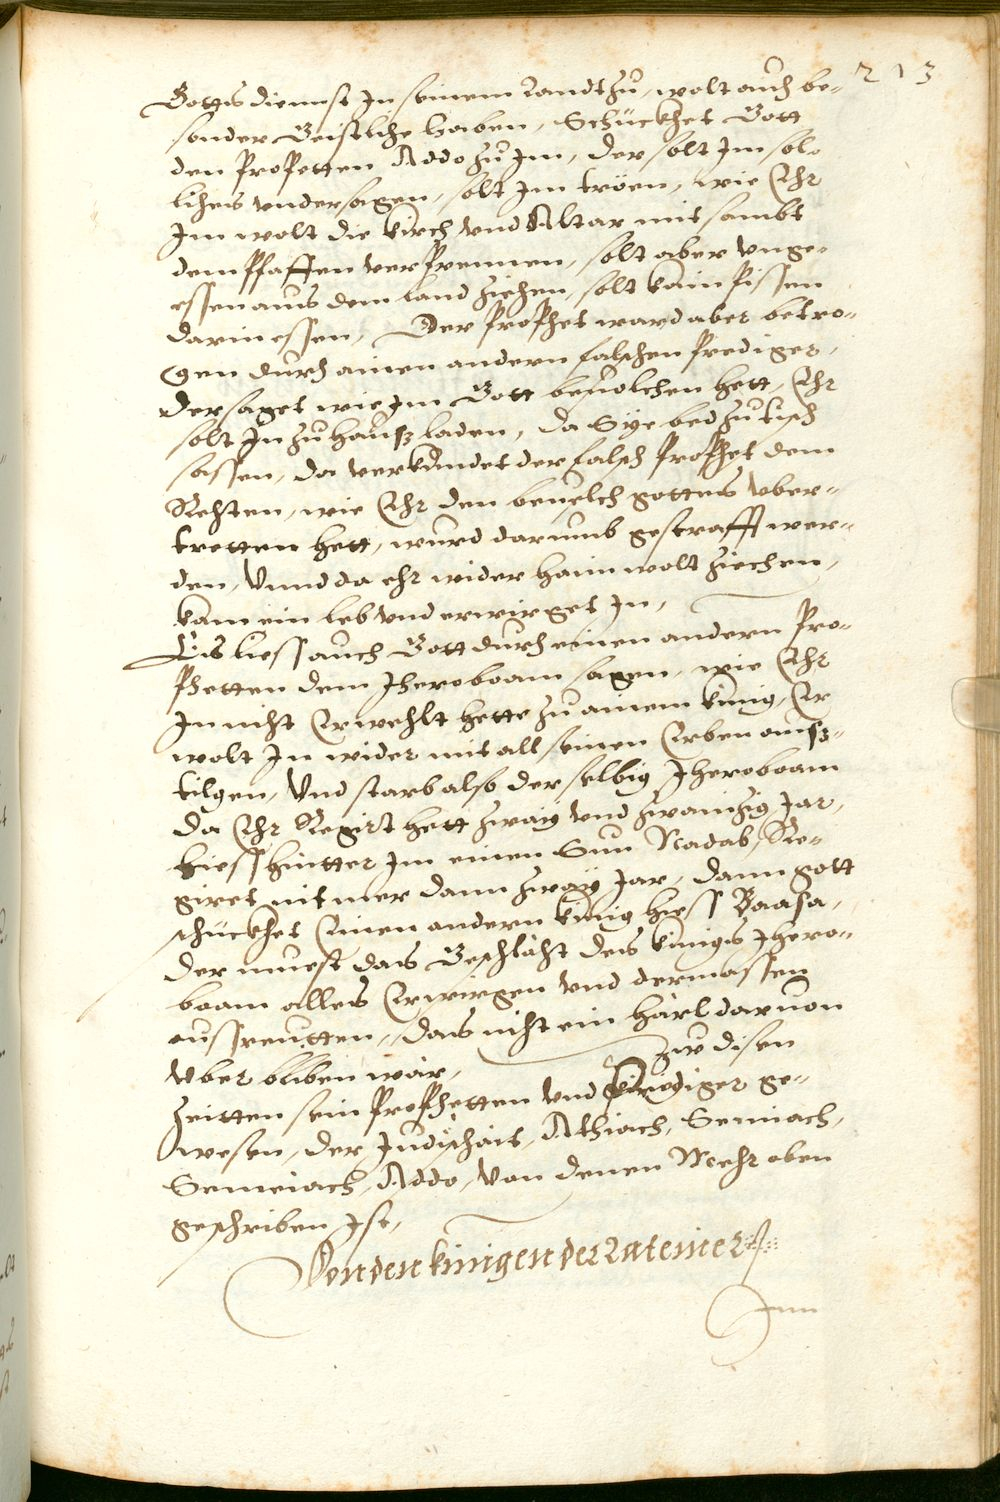 213
Gottis diennst in seinem Landt zu, wolt auch be-
sonder Geistliche haben, Schückhet Gott
den Propetten Addo zu im, der solt im sol-
liches undersagen, solt im tröen, wie Ehr
im wolt die kirch und Altar mit sambt
dem Pfaffen verprennen, solt aber unge-
essen aus dem land ziehen, solt kain pissen
darin essen, Der Prophet ward aber betro-
gen durch ainen andern falschen Prediger,
der saget wie im Gott beuolchen hett, Ehr
solt in zu hausz laden, da Sye bed zu tisch
sassen, da verkündet der falsch Prophet dem
Rechten, wie Ehr den beuelch gottes uber-
tretten hett, wurd darumb gestrafft wer-
den, Unnd da ehr wider haim wolt ziechen,
kam ein leb und erwirget in,
Es liess auch Gott durch einen andern Pro-
phetten dem Jheroboam sagen, wie Ehr
in nicht Erwehlt hette zu ainem künig, Er
wolt in wider mit all seinen Erben ausz-
tilgen, Und starb also der selbig Jheroboam
da Ehr Regirt hett zway und zwainzig Jar,
liess hintter im einen Sun Nadab, Re-
giret nit mer dann zway Jar, dann gott
schückhet Einen andern künig hiess Baasa,
der muest das Geschlächt des künigs Jhero-
boam alles Erwirgen und dermassen
aussreutten, das nicht ein härl daruon
uber bliben wär, zw disen
zeitten sein Prophetten und Prediger ge-
wesen, der Judischait, Athiach, Semiach,
Semeiach, Addo, von denen Mehr oben
geschriben ist,
Von den künigen der Lateiner
Inn